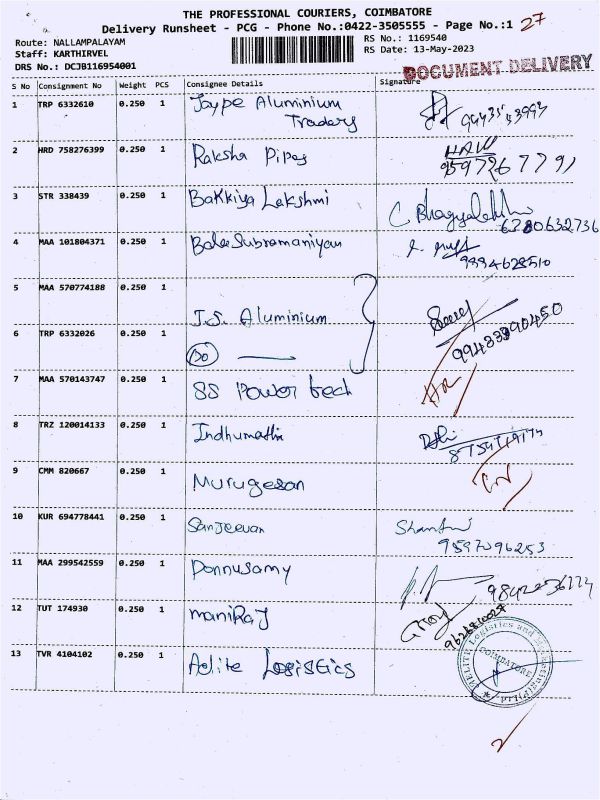 THE PROFESSIONAL COURIERS, COIMBATORE
Delivery Runsheet - PCG - Phone No.:0422-3505555 - Page No.:1 27
Route: NALLAMPALAYAM
Staff: KARTHIRVEL
DRS No.: DCJB116954001
RS No.: 1169540
RS Date: 13-May-2023
DOCUMENT DELIVERY
S No Consignment No Weight PCS Consignee Details Signature
1 TRP 6332610 0.250 1 Jaype Aluminium
Traders
2 HRD 758276399 0.250 1 Raksha Pipes
3 STR 338439 0.250 1 Bakkiya Lakshmi C Bhagyalakshmi
6280632736
4 MAA 101804371 0.250 1 BalaSubramaniyan
9994628510
5 MAA 570774188 0.250 1 J.S. Aluminium
6 TRP 6332026 0.250 1 Do
7 MAA 570143747 0.250 1 SS Power tech
8 TRZ 120014133 0.250 1 Indhumathi
9 CMM 820667 0.250 1 Murugesan
10 KUR 694778441 0.250 1 Sanjeevan Shanthi
9597096253
11 MAA 299542559 0.250 1 Ponnusamy
12 TUT 174930 0.250 1 maniRaj
13 TVR 4104102 0.250 1 Aelite Logistics
COIMBATORE